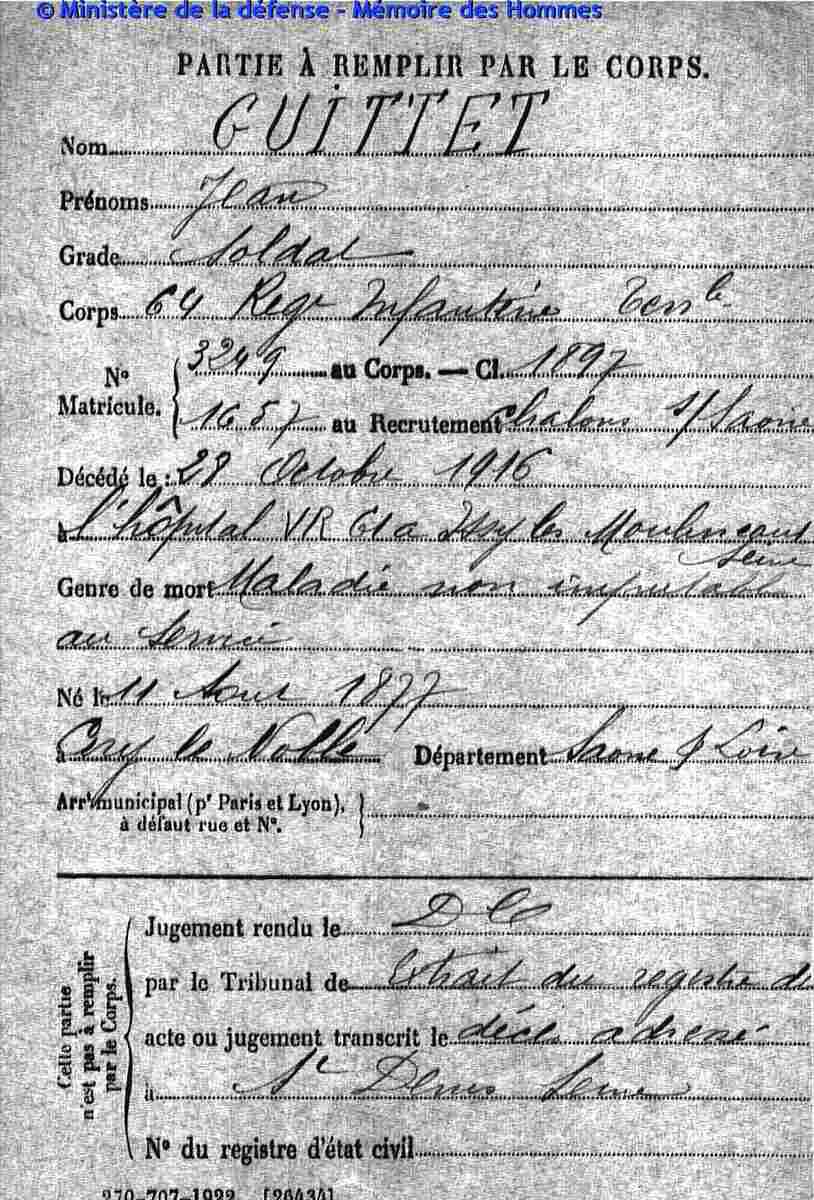 © Ministère de la défense - Mémoire des Hommes
PARTIE À REMPLIR PAR LE CORPS.
Nom GUITTET
Prénoms Jean
Grade Soldat
Corps 64 Reg Infanterie Terr le
No Matricule. 3249 au Corps. — Cl. 1897
1657 au Recrutement Chalons s/ Saone
Décédé le : 28 Octobre 1916
à l'hôpital VR Issy les Moulineaux
Seine
Genre de mort Maladie non imputable
au Service
Né le 11 Aout 1877
à le Noble Département Saone & Loire
Arrt municipal (pr Paris et Lyon),
à défaut rue et No.
Cette partie
n'est pas à remplir
par le Corps.
Jugement rendu le
par le Tribunal de Extrait du registre de
acte ou jugement transcrit le décès adressé
à St Denis Seine
No du registre d'état civil
270-707-1922. [26434]